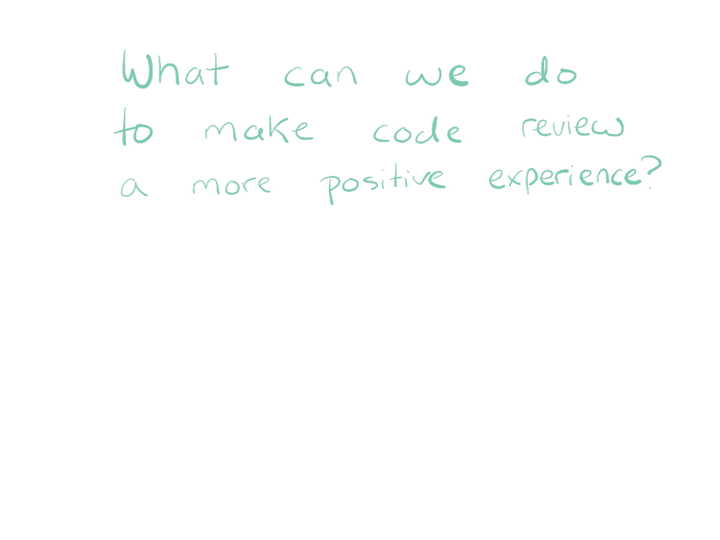 What can we do
to make code review
a more positive experience?